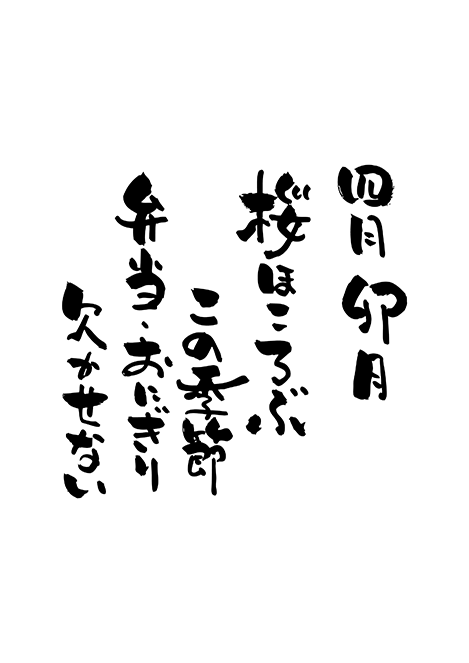 四月 卯月
桜ほころぶ
この季節
弁当、おにぎり
欠かせない